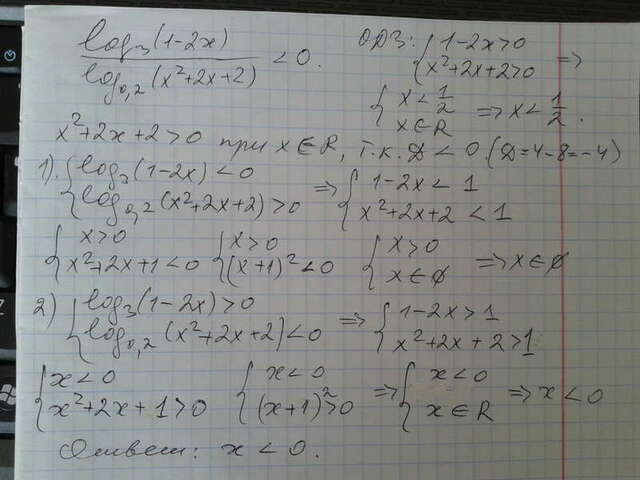 log₃(1-2x) / log₀,₂(x²+2x+2) < 0. ОДЗ: { 1-2x>0 ; x²+2x+2>0 ⇒
{ x<1/2 ; x∈R ⇒ x<1/2.
x²+2x+2>0 при x∈R, т.к. Д<0.(Д=4-8=-4)
1). { log₃(1-2x)<0 ; log₀,₂(x²+2x+2)>0 ⇒ { 1-2x<1 ; x²+2x+2<1
{ x>0 ; x²+2x+1<0 { x>0 ; (x+1)²<0 { x>0 ; x∈∅ ⇒ x∈∅
2) { log₃(1-2x)>0 ; log₀,₂(x²+2x+2)<0 ⇒ { 1-2x>1 ; x²+2x+2>1
{ x<0 ; x²+2x+1>0 { x<0 ; (x+1)²>0 ⇒ { x<0 ; x∈R ⇒ x<0
Ответ: x<0.